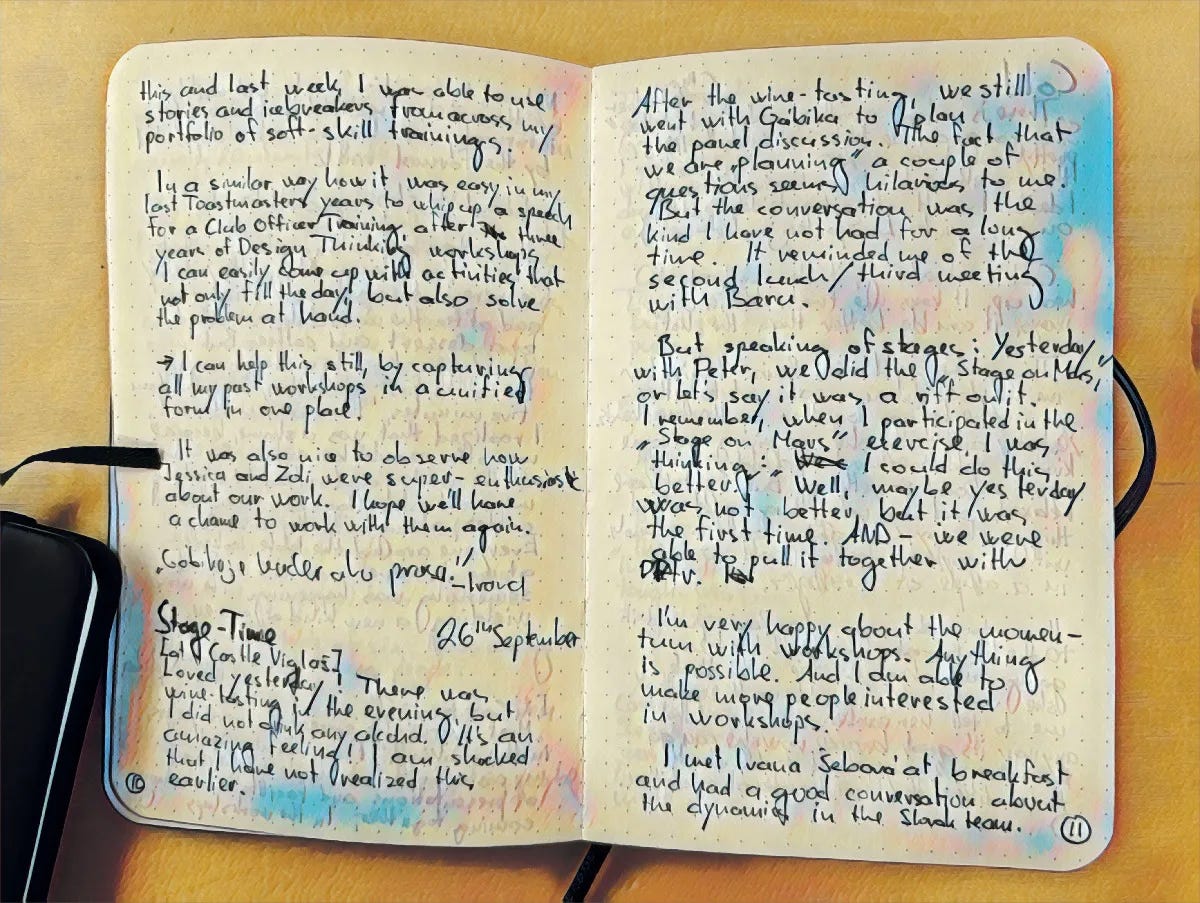 this and last week, I was able to use
stories and icebreakers from across my
portfolio of soft-skill trainings.
In a similar way how it was easy in my
last Toastmasters years to whip up a speech
for a Club Officer Training, after three
years of Design Thinking workshops
I can easily come up with activities that
not only fill the day, but also solve
the problem at hand.
→ I can help this still, by capturing
all my past workshops in a unified
form in one place!
It was also nice to observe how
Jessica and Zoli were super-enthusiastic
about our work. I hope we'll have
a chance to work with them again.
Stage-Time 26th September
[at Castle Vígľaš]
Loved yesterday! There was
wine-tasting in the evening, but
I did not drink any alcohol. It's an
amazing feeling! I am shocked
that I have not realized this
earlier.
10
After the wine-tasting, we still
went with Gabika to plan
the panel discussion. The fact that
we are „planning" a couple of
questions seems hilarious to me.
But the conversation was the
kind I have not had for a long
time. It reminded me of the
second lunch/third meeting
with Baru.
But speaking of stages: Yesterday,
with Peter, we did the „Stage on Mars,"
or let's say it was a riff on it.
I remember, when I participated in the
„Stage on Mars" exercise, I was
thinking: „ I could do this
better." Well, maybe yesterday
was not better, but it was
the first time. AND – we were
able to pull it together with
I'm very happy about the momen-
tum with workshops. Anything
is possible. And I am able to
make more people interested
in workshops.
I met Ivana Šebová at breakfast
and had a good conversation about
the dynamics in the Slovak team.
11